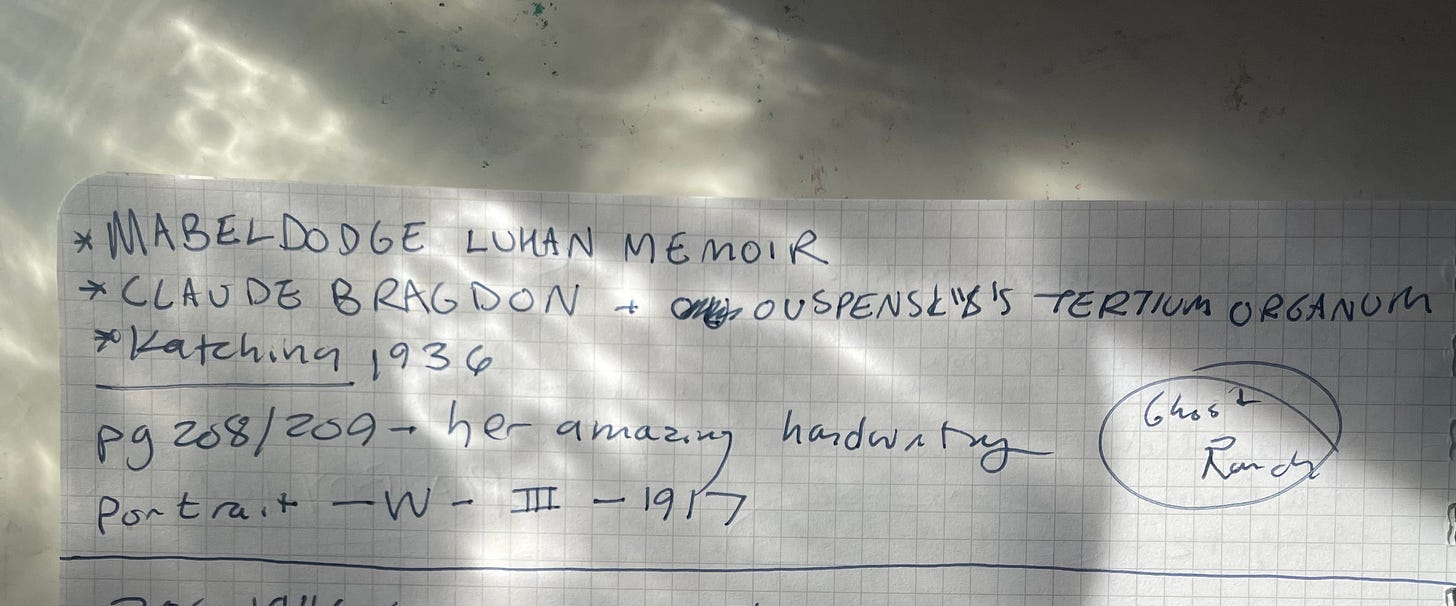 * MABEL DODGE LUHAN MEMOIR
* CLAUDE BRAGDON + OUSPENSKY'S TERTIUM ORGANUM
* Katching 1936
pg 208/209 - her amazing handwriting
Ghost
Ranch
Portrait - W - III - 1917